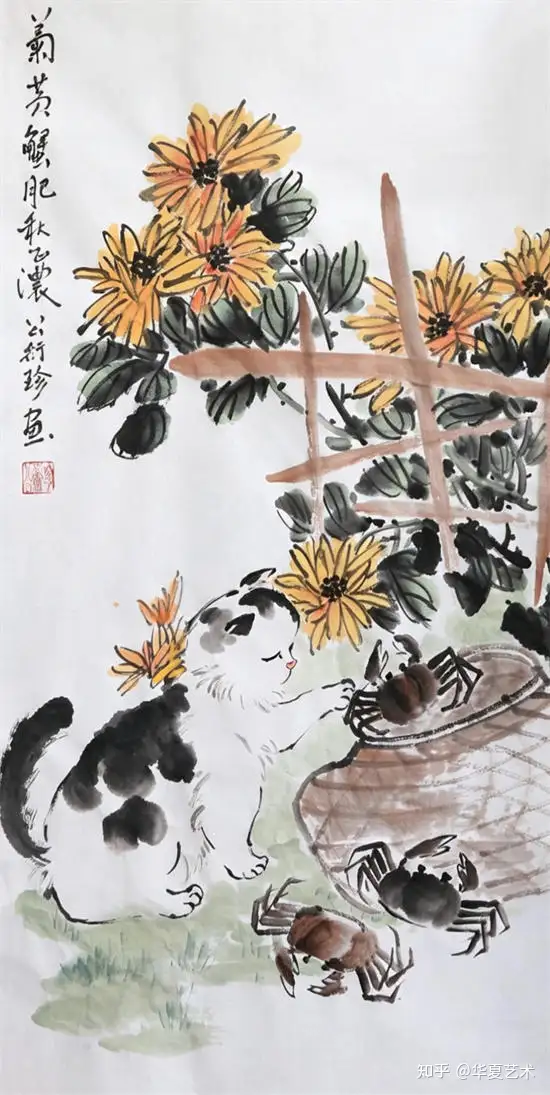 菊黄蟹肥秋正濃 公衍珍画
知乎 @华夏艺术